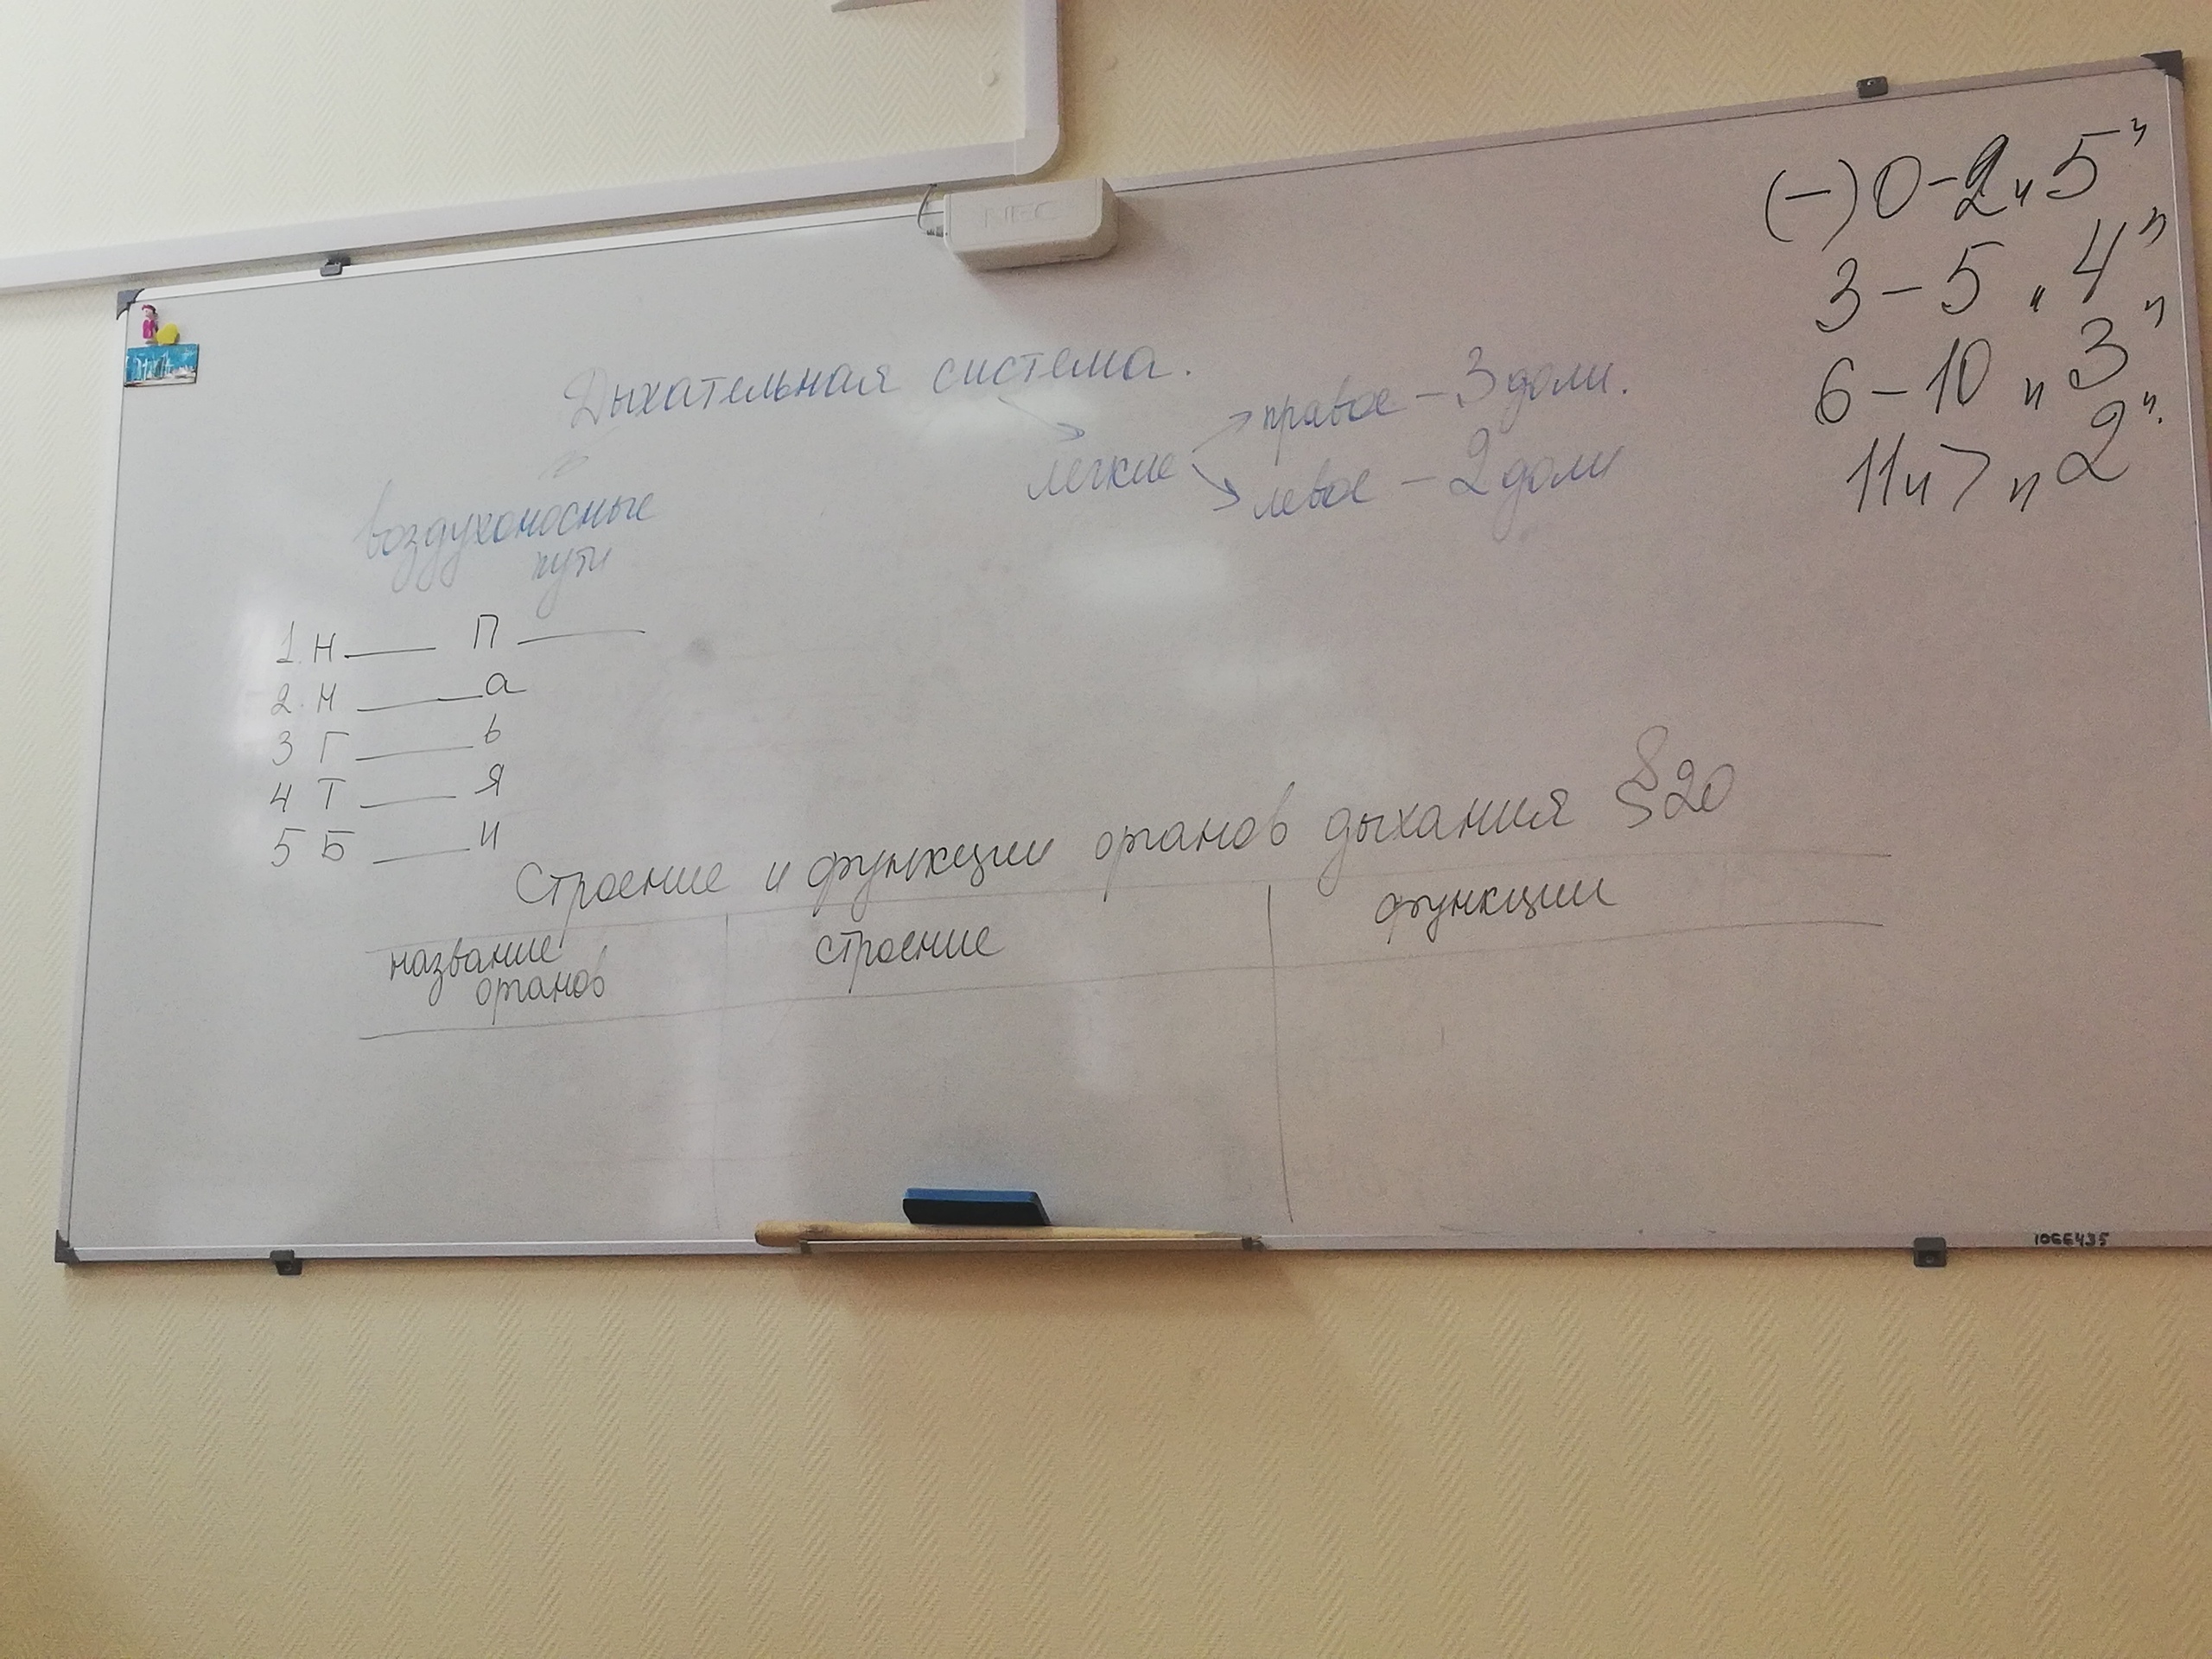 NEC
(-) 0 - 2 „5"
3 - 5 „4"
6 - 10 „3"
11 и > „2".
Дыхательная система.
легкие
правое - 3 доли.
левое - 2 доли
воздухоносные
пути
1. Н____ П____
2. Н ____а
3 Г____ь
4 Т____Я
5 Б____и
Строение и функции органов дыхания §20
название
органов
строение
функции
1066435